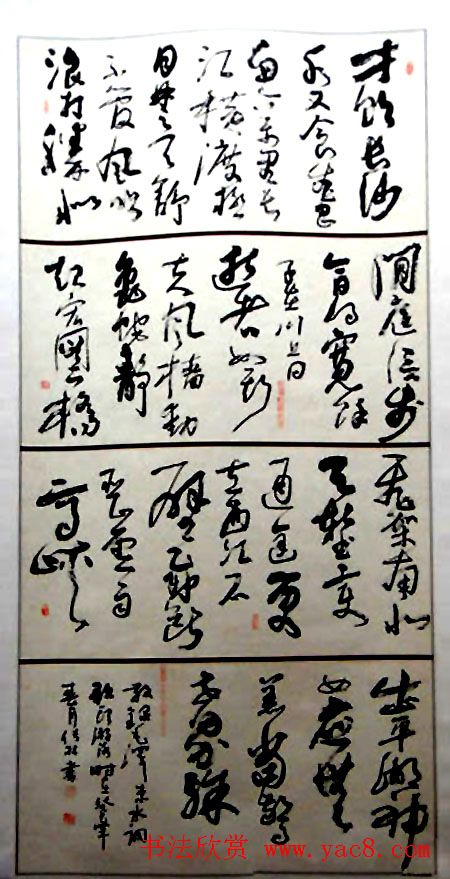 才饮长沙
水又食武昌
鱼万里长
江横渡极
目楚天舒
不管风吹
浪打胜似
闲庭信步
今日得宽馀
子在川上曰
逝者如斯
夫风樯动
龟蛇静
起宏图一桥
飞架南北
天堑变
通途更
立西江石
壁截断
巫山云雨
高峡
出平湖神
女应无
恙当惊
世界殊
敬录毛泽东水调
歌头游泳时在
春月书
书法欣赏 www.yac8.com